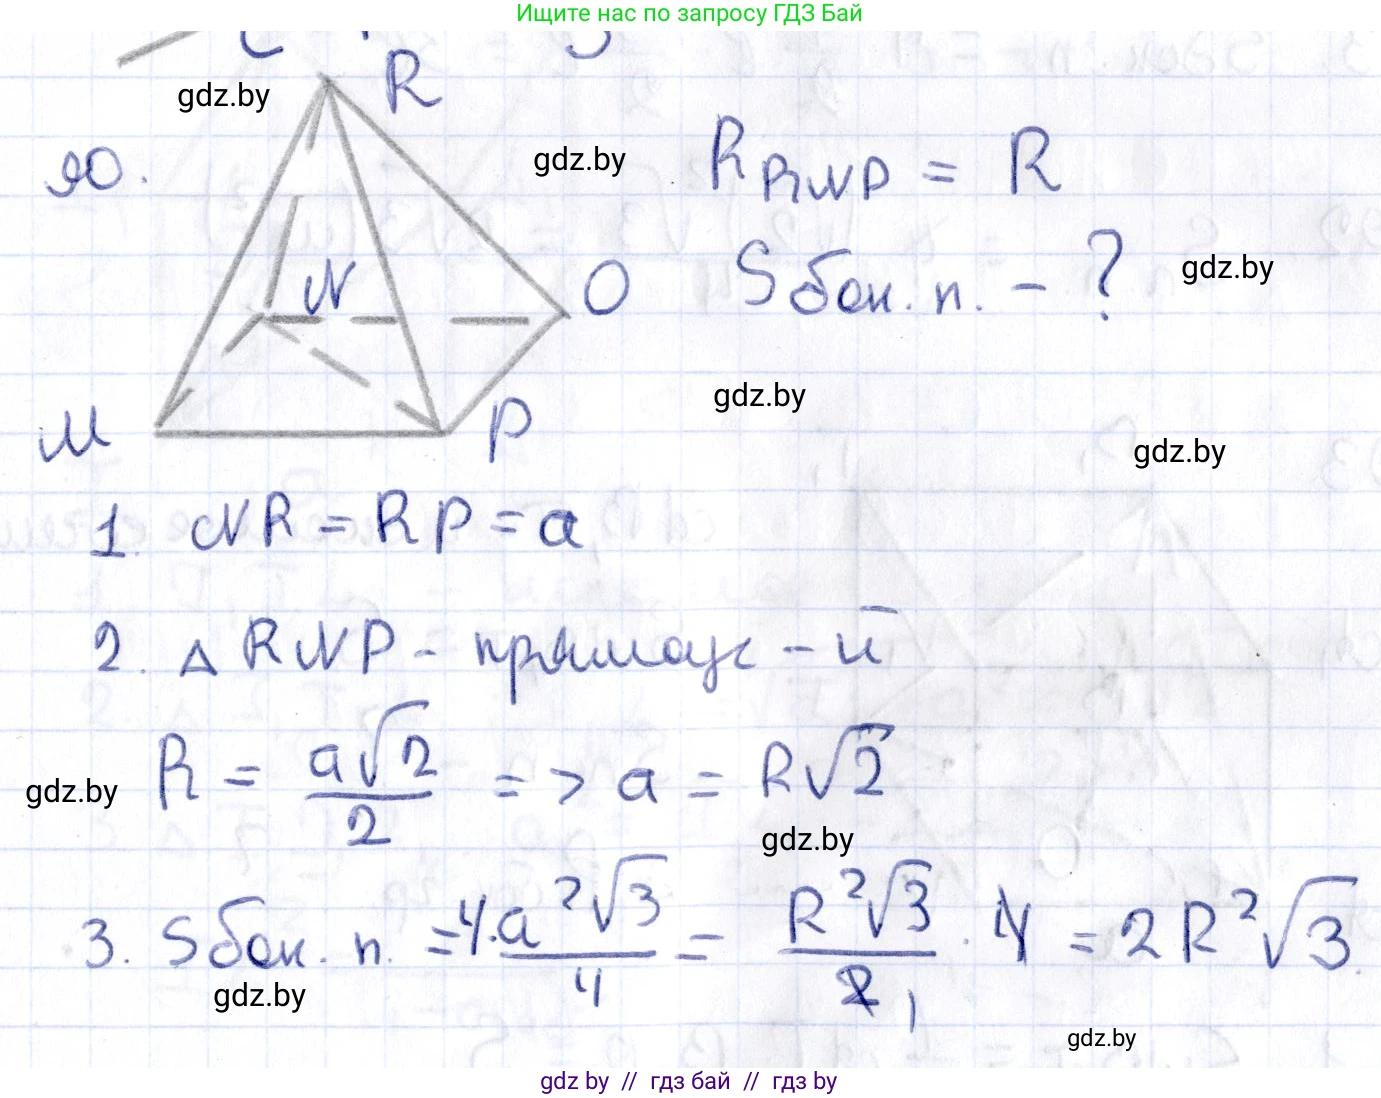 Ищите нас по запросу ГДЗ Бай
gdz.by
R
90.
gdz.by
R RNP = R
N
O
S бок. п. - ?
gdz.by
gdz.by
M
P
gdz.by
1. NR = RP = a
2. △ RNP - прямоуг - й
gdz.by
R = a√2 / 2 => a = R√2
gdz.by
3. S бок. п. = 4 · a²√3 / 4 = R²√3 / 2 · 4 = 2R²√3
1
gdz.by
gdz.by
gdz by // гдз бай // гдз by